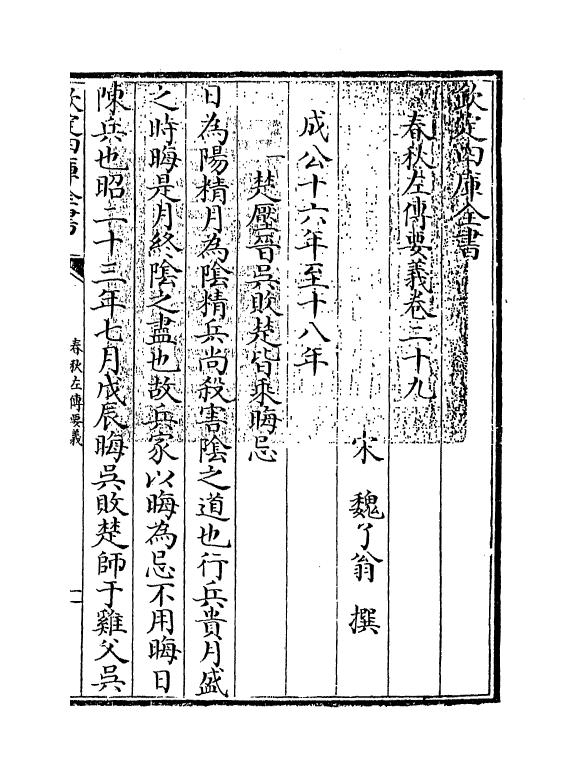 欽定四庫全書
春秋左傳要義卷二十九
宋 魏了翁 撰
成公十六年至十八年
一 楚壓晉吳敗楚皆乘晦忌
日為陽精月為陰精兵尚殺害陰之道也行兵貴月盛
之時晦是月終陰之盡也故兵家以晦為忌不用晦日
陳兵也昭二十三年七月戊辰晦吳敗楚師于雞父吳
欽定四庫全書
春秋左傳要義
一